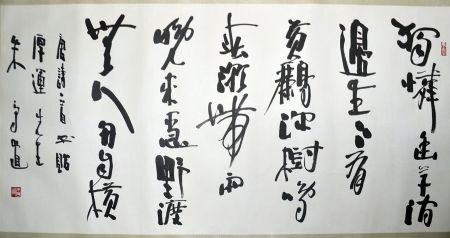 獨憐幽草澗
邊生上有
黄鸝深樹鳴
春潮帶雨
晚来急野渡
無人舟自横
唐詩一首書贈
厚運先生
朱守道